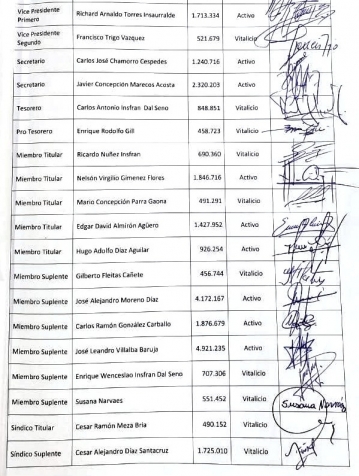 Vice Presidente Primero Richard Arnaldo Torres Insaurralde 1.713.334 Activo
Vice Presidente Segundo Francisco Trigo Vazquez 521.679 Vitalicio
Secretario Carlos José Chamorro Cespedes 1.240.716 Activo
Secretario Javier Concepción Marecos Acosta 2.320.203 Activo
Tesorero Carlos Antonio Insfran Dal Seno 848.851 Vitalicio
Pro Tesorero Enrique Rodolfo Gill 458.723 Vitalicio
Miembro Titular Ricardo Nuñez Insfran 690.360 Vitalicio
Miembro Titular Nelsón Virgilio Gimenez Flores 1.846.716 Activo
Miembro Titular Mario Concepción Parra Gaona 491.291 Vitalicio
Miembro Titular Edgar David Almirón Agüero 1.427.952 Activo
Miembro Titular Hugo Adolfo Díaz Aguilar 926.254 Activo
Miembro Suplente Gilberto Fleitas Cañete 456.744 Vitalicio
Miembro Suplente José Alejandro Moreno Díaz 4.172.167 Activo
Miembro Suplente Carlos Ramón González Carballo 1.876.679 Activo
Miembro Suplente José Leandro Villalba Baruja 4.921.235 Activo
Miembro Suplente Enrique Wenceslao Insfran Dal Seno 707.306 Vitalicio
Miembro Suplente Susana Narvaes 551.452 Vitalicio Susana
Síndico Titular Cesar Ramón Meza Bria 490.152 Vitalicio
Síndico Suplente Cesar Alejandro Díaz Santacruz 1.725.010 Vitalicio